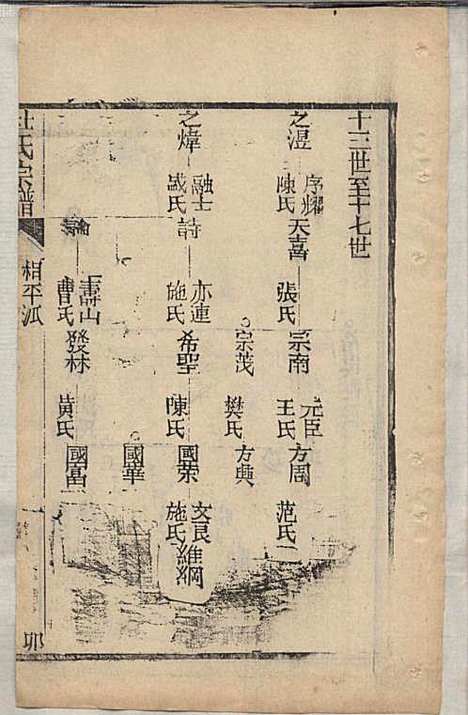 十三世至十七世
之湜 序耀 陳氏 天喜 張氏 宗南 元臣 王氏 方周 范氏
宗茂 樊氏 方興
之煒 融士 戚氏 詩 亦連 施氏 希聖 陳氏 國荣 文良 施氏 維綱
國華
論 壽山 曹氏 發林 黃氏 國富
杜氏宗譜 相平派 卯